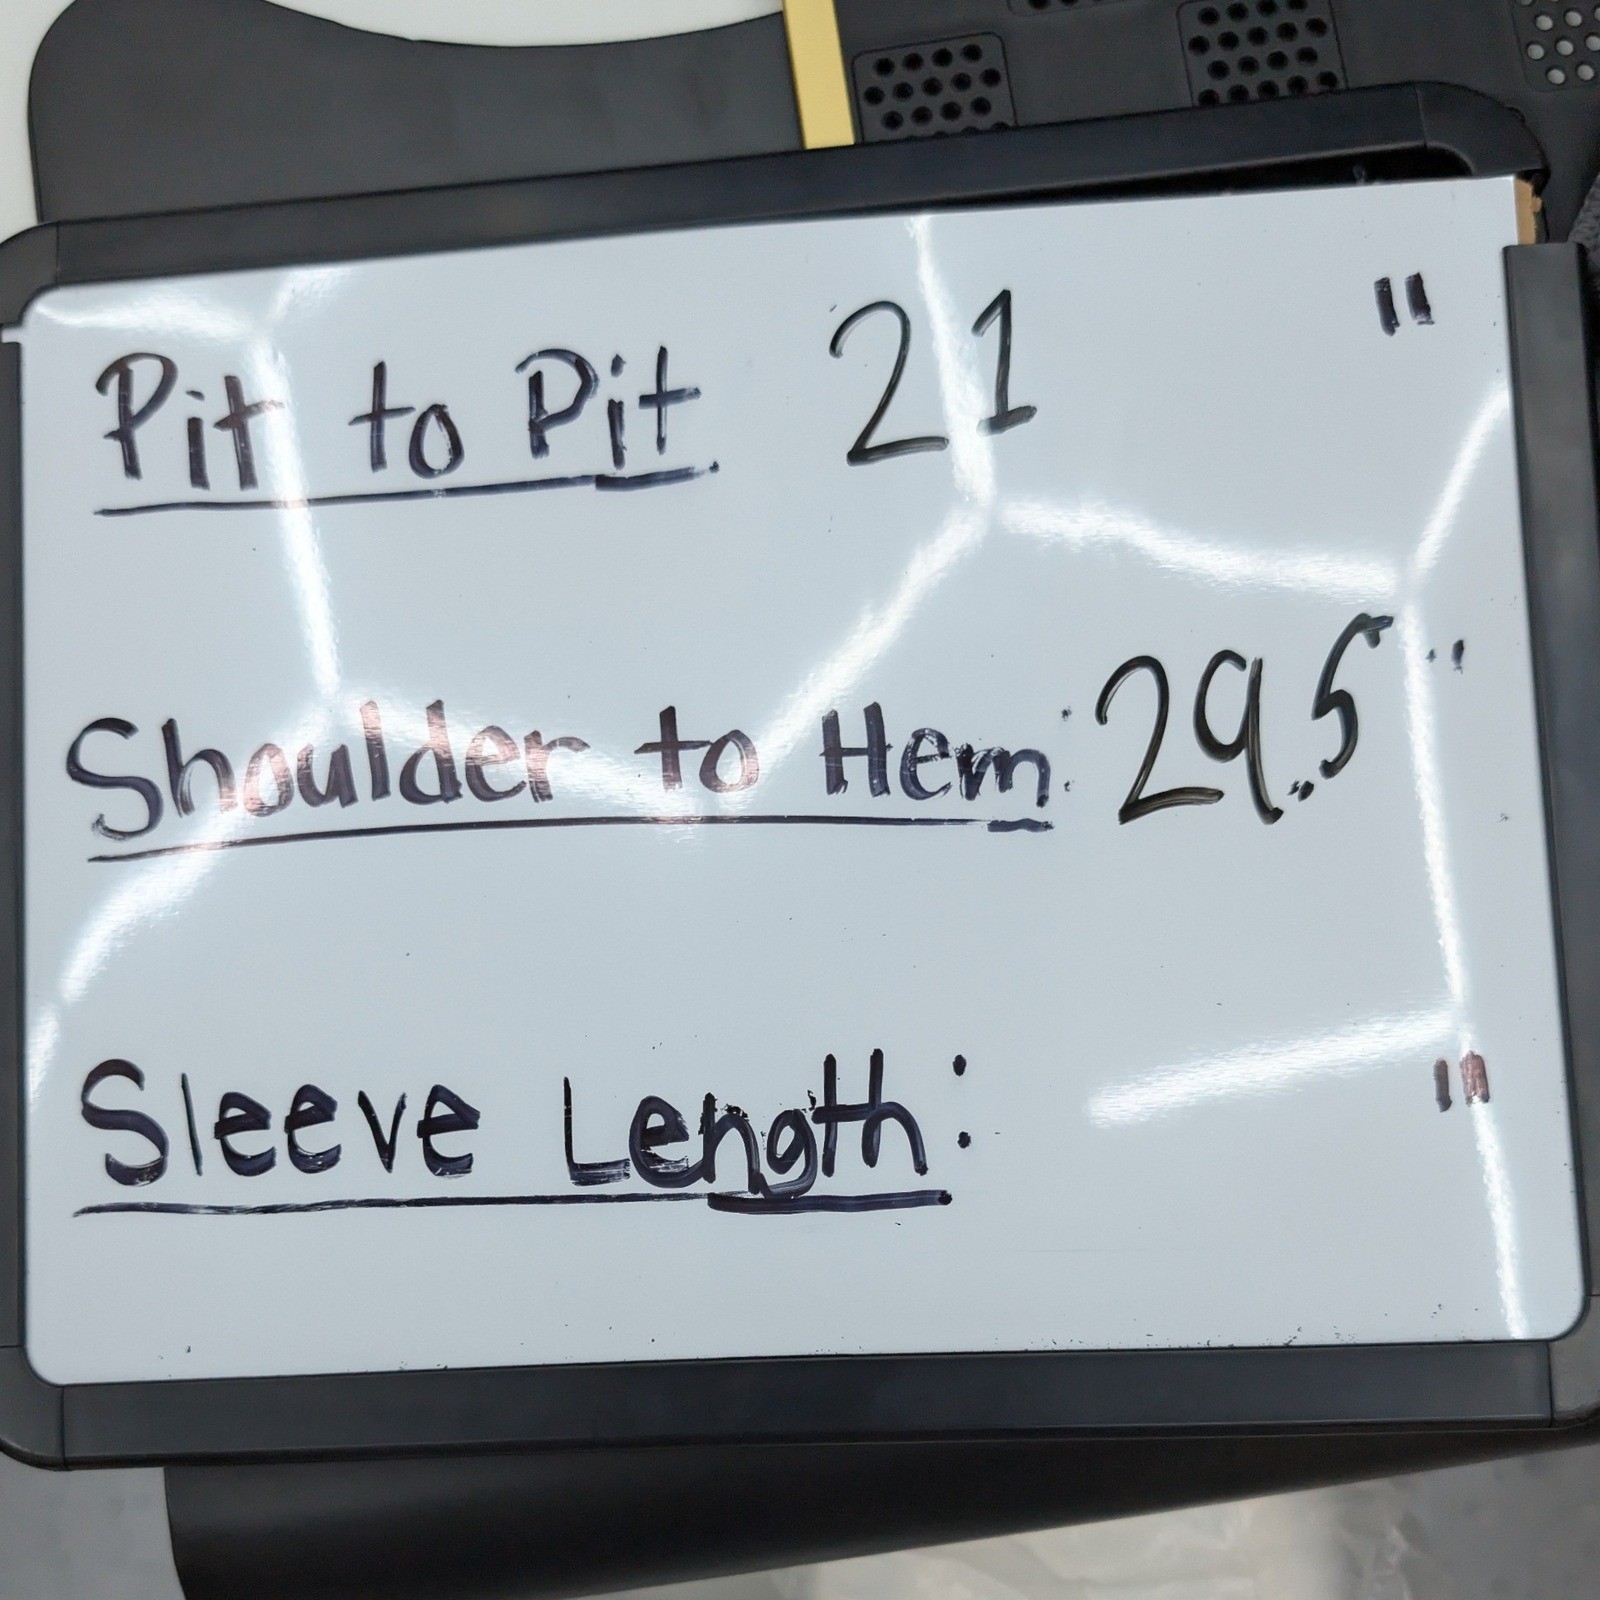 Pit to Pit 21 "
Shoulder to Hem: 29.5"
Sleeve Length: "